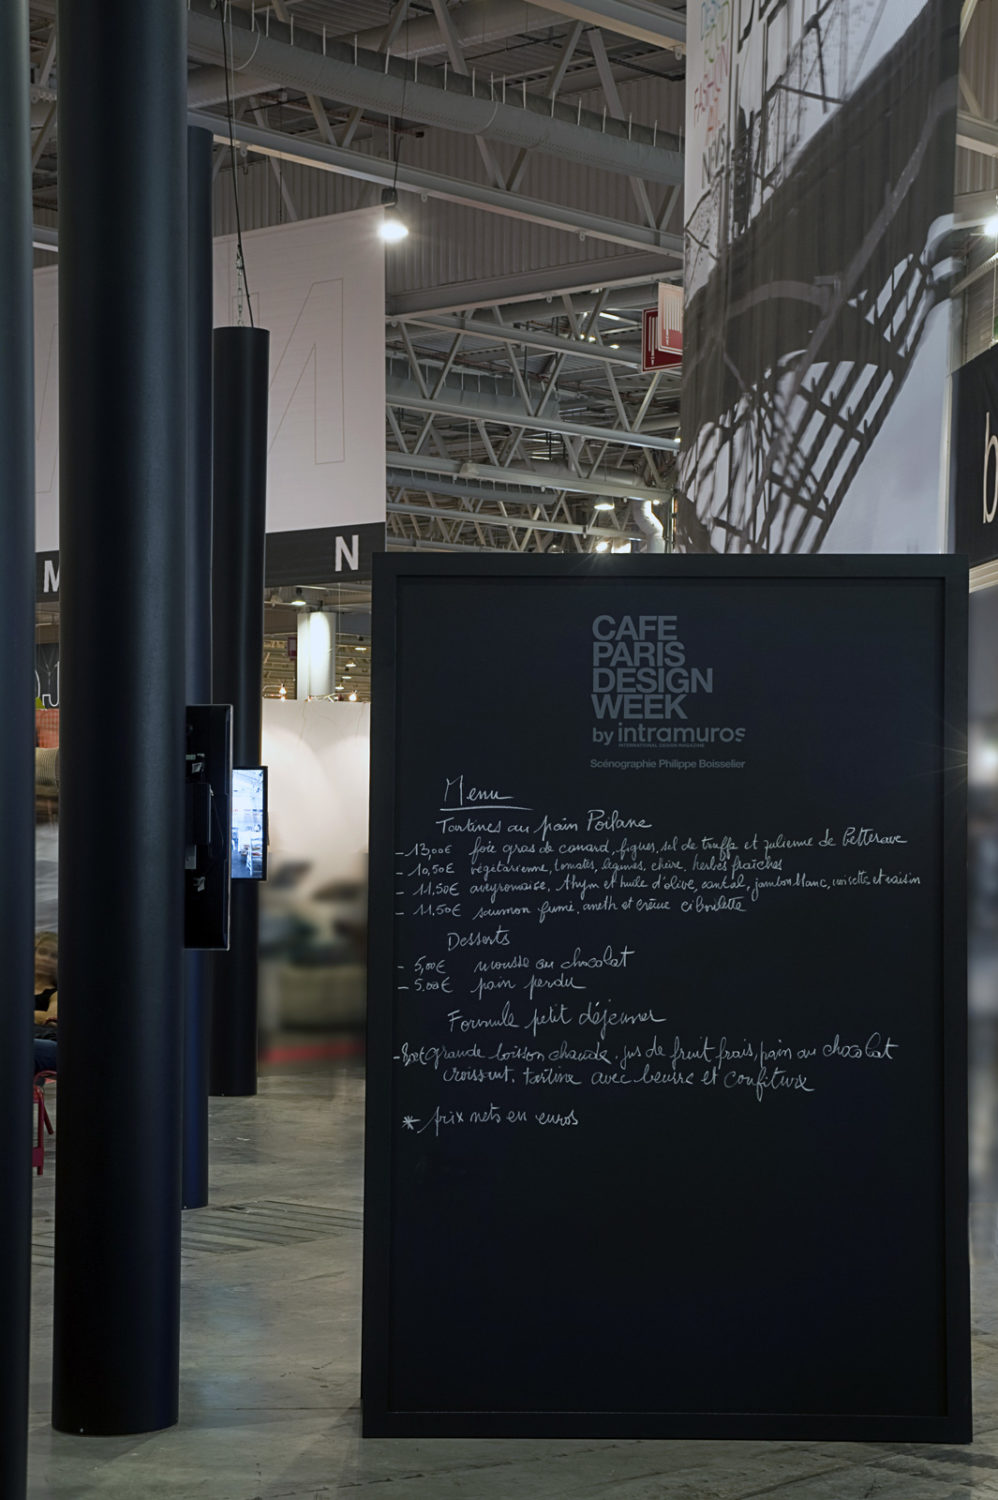 DESIGN
FASHION
NEWS
N
M
b
CAFE
PARIS
DESIGN
WEEK
by intramuros
INTERNATIONAL DESIGN MAGAZINE
Scénographie Philippe Boisselier
Menu
Tartines au pain Poilane
- 13,00€ foie gras de canard, figues, sel de truffe et julienne de betterave
- 10,50€ végétarienne, tomates, légumes, chèvre, herbes fraîches
- 11,50€ aveyronnaise, thym et huile d'olive, cantal, jambon blanc, noisette et raisin
- 11,50€ saumon fumé, aneth et crème ciboulette
Desserts
- 5,00€ mousse au chocolat
- 5,00€ pain perdu
Formule petit déjeuner
- 8,00€ grande boisson chaude, jus de fruit frais, pain au chocolat
croissant, tartine avec beurre et confiture
* prix nets en euros